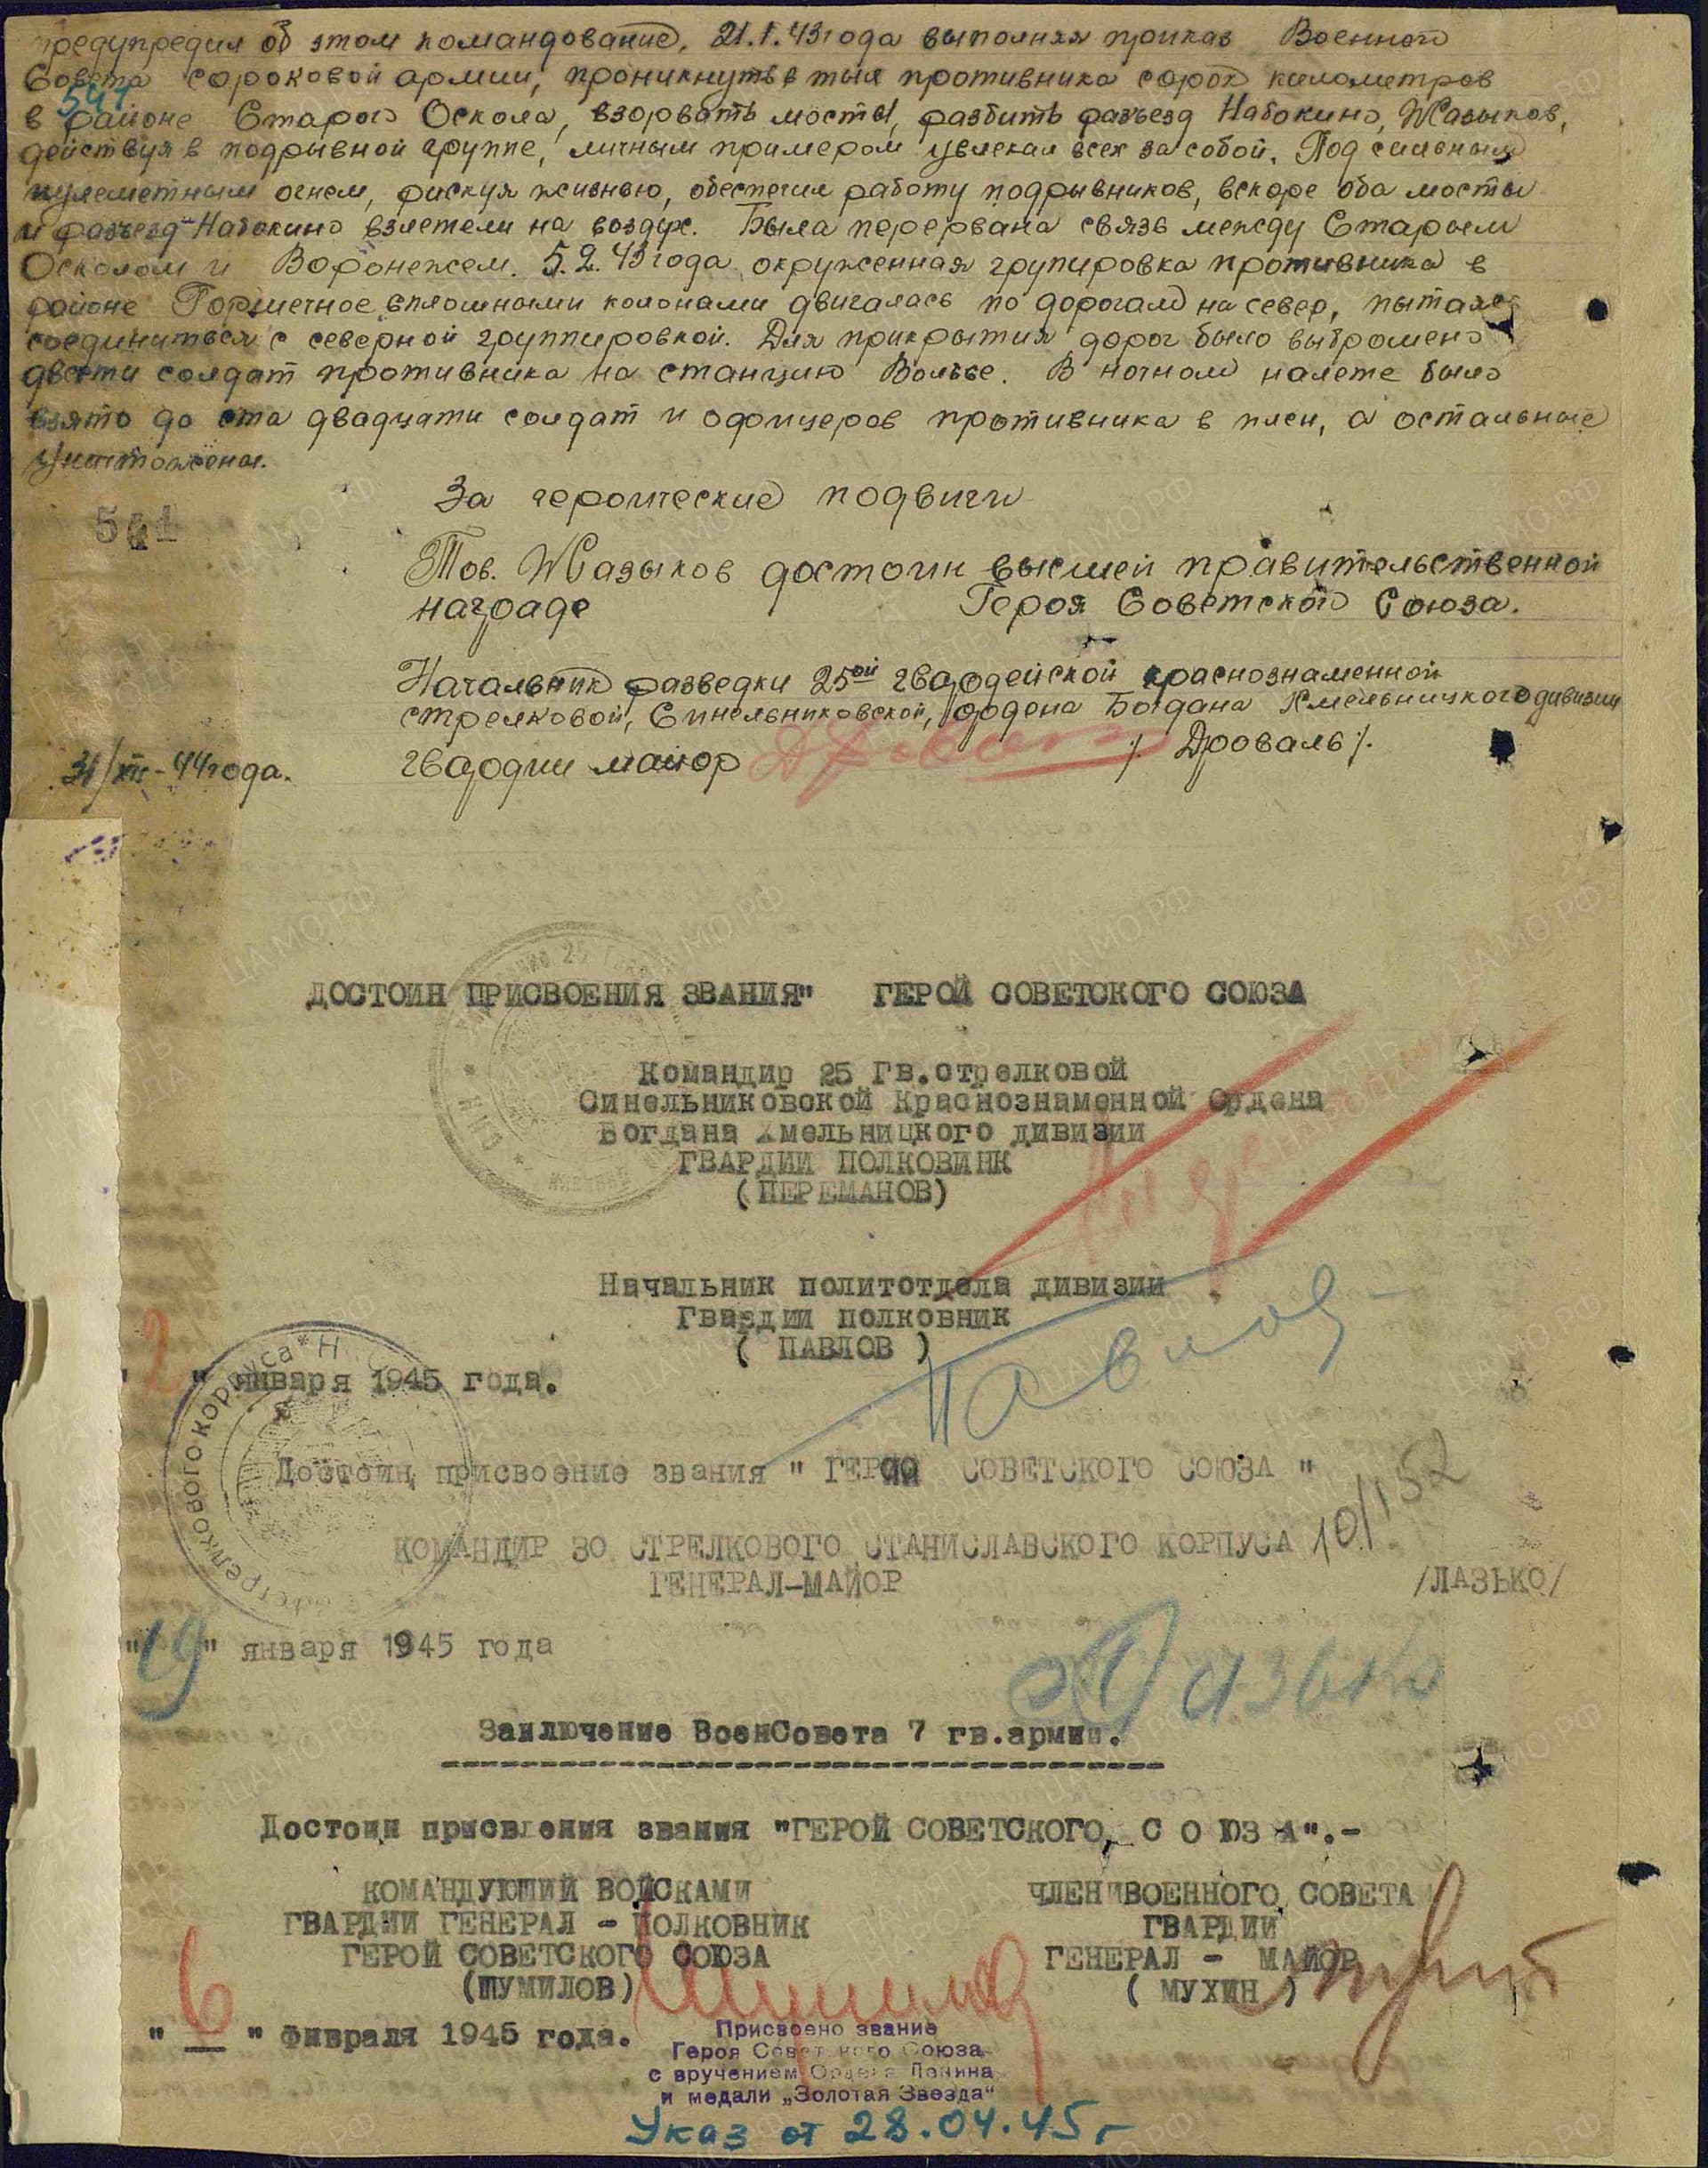 предупредил об этом командование. 21.1.43 года выполняя приказ Военного
Совета сороковой армии, проникнуть в тыл противника сорок километров
541
в районе Старого Оскола, взорвать мосты, разбить разъезд Набокино, Жазыков,
действуя в подрывной группе, личным примером увлекал всех за собой. Под сильным
пулеметным огнем, рискуя жизнью, обеспечил работу подрывников, вскоре оба мосты
и разъезд Набокино взлетели на воздух. Была перервана связь между Старым
Осколом и Воронежем. 5.2.43 года окруженная групировка противника в
районе Горшечное сплошными колонами двигалась по дорогам на север, пытаясь
соединиться с северной группировкой. Для прикрытия дорог было выброшено
двести солдат противника на станцию Волье. В ночном налете было
взято до ста двадцати солдат и офицеров противника в плен, а остальные
уничтожены.
За героические подвиги
541
Тов. Жазыков достоин высшей правительственной
награде Героя Советского Союза.
Начальник разведки 25ой гвардейской краснознаменной
стрелковой, Синельниковской, ордена Богдана Хмельницкого дивизии
гвардии майор /. Дроваль/.
31/XII-44 года.
ДОСТОИН ПРИСВОЕНИЯ ЗВАНИЯ" ГЕРОЙ СОВЕТСКОГО СОЮЗА
Командир 25 Гв.стрелковой
Синельниковской Краснознаменной Ордена
Богдана Хмельницкого дивизии
ГВАРДИИ ПОЛКОВИНК
(ПЕРЕМАНОВ)
Начальник политотдела дивизии
Гвардии полковник
( ПАВЛОВ )
Павлов
"2" января 1945 года.
стрелкового корпуса * Н
Достоин присвоение звания " ГЕРОЙ СОВЕТСКОГО СОЮЗА "
КОМАНДИР 30 СТРЕЛКОВОГО СТАНИСЛАВСКОГО КОРПУСА
10/I 52
ГЕНЕРАЛ-МАЙОР /ЛАЗЬКО/
Лазько
"19" января 1945 года
Заключение ВоенСовета 7 гв.армии.
Достоин присвления звания "ГЕРОЙ СОВЕТСКОГО С О Ю З А".-
КОМАНДУЮЩИЙ ВОЙСКАМИ ЧЛЕН ВОЕННОГО СОВЕТА
ГВАРДИИ ГЕНЕРАЛ - ПОЛКОВНИК ГВАРДИИ
ГЕРОЙ СОВЕТСКОГО СОЮЗА ГЕНЕРАЛ - МАЙОР
(ШУМИЛОВ) ( МУХИН )
Шумилов
"6" фивраля 1945 года.
Присвоено звание
Героя Советского Союза
с вручением Ордена Ленина
и медали „Золотая Звезда"
Указ от 28.04.45 г
ЦАМО РФ